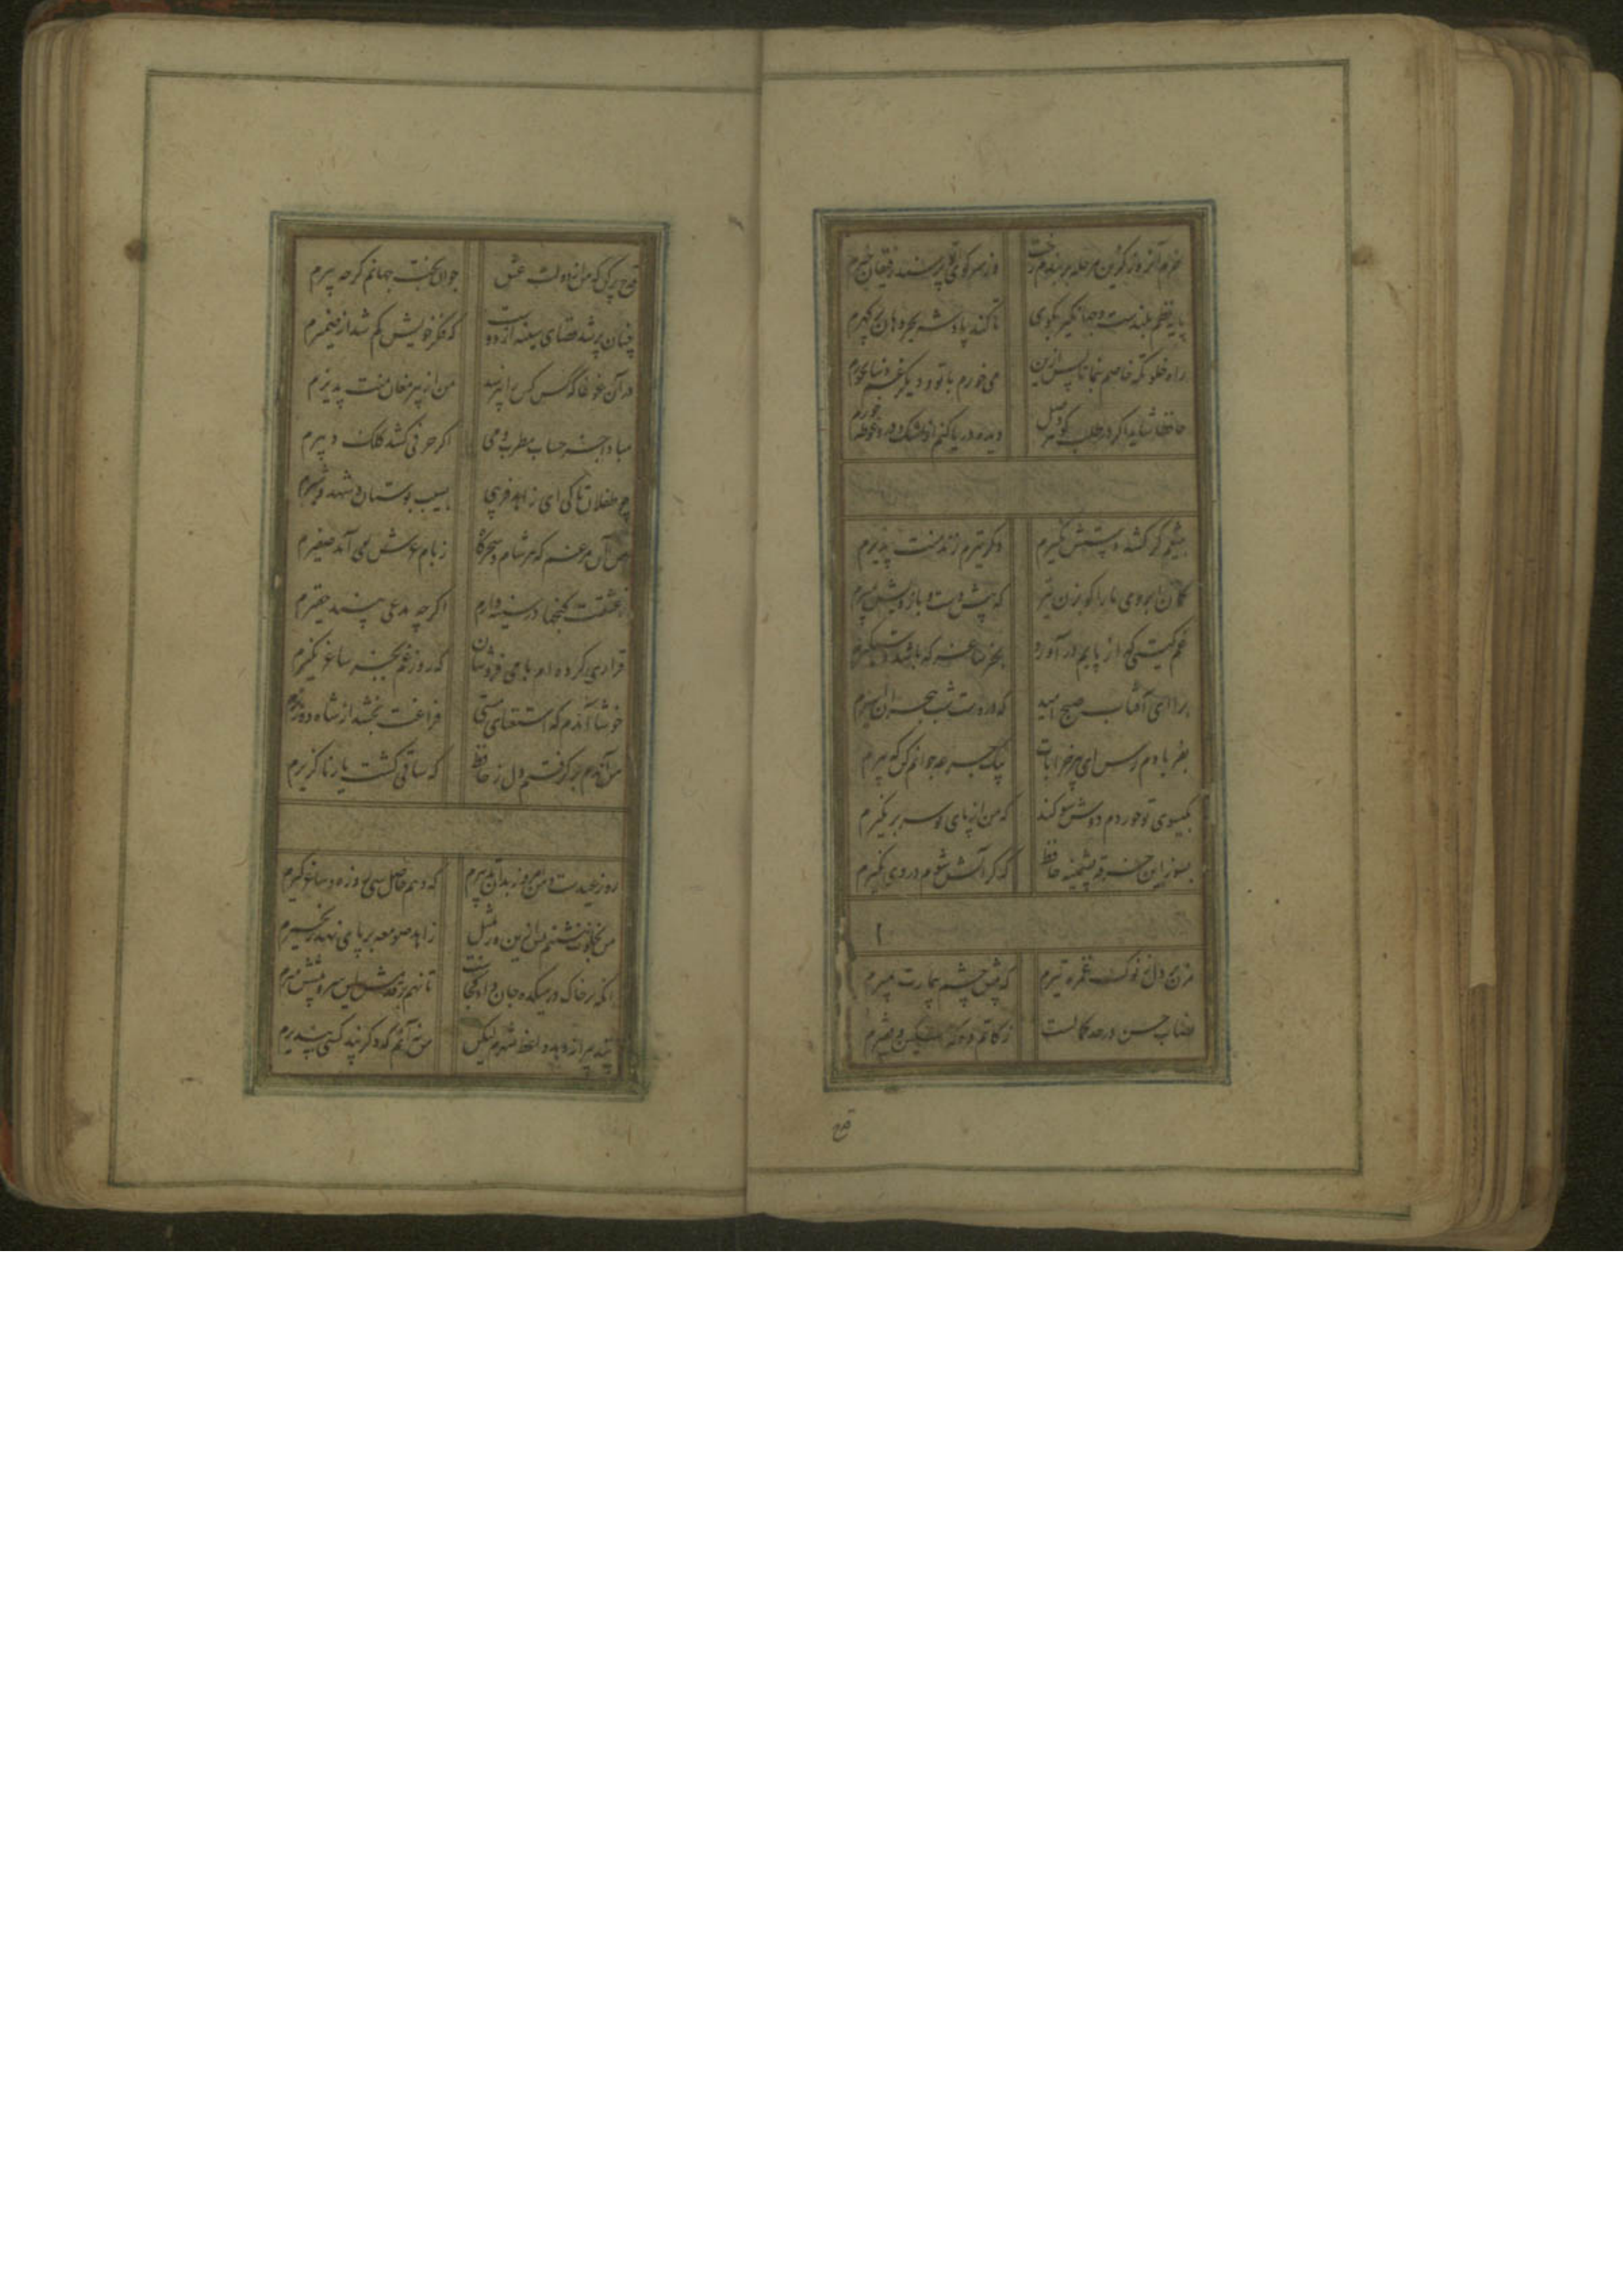 خرم آنروز کزین مرحله بربندم رخت وز سر کوی تو پرسند رفیقان خبرم
پایه نظم بلندست و جهانگیر بکوی تا کند پادشه بحر دهان پر گهرم
راه خلوتگه خاصم بنما تا پس ازین می خورم با تو و دیگر غم دنیا نخورم
حافظا شاید اگر در طلب گوهر وصل دیده دریا کنم از اشک و درو غوطه خورم
بتیغم گر کشد دستش نگیرم وگر تیرم زند منت پذیرم
کمان ابروی ما را گو بزن تیر که پیش دست و بازویش بمیرم
غم گیتی گر از پایم در آورد بجز ساغر که باشد دستگیرم
برآ ای آفتاب صبح امید که در دست شب هجران اسیرم
بفریادم رس ای پیر خرابات بیک جرعه جوانم کن که پیرم
بگیسوی تو خوردم دوش سوگند که من از پای تو سر بر نگیرم
بسوز این خرقه پشمینه حافظ که گر آتش شوم در وی نگیرم
مزن بر دل ز نوک غمزه تیرم که پیش چشم بیمارت بمیرم
نصاب حسن در حد کمالست زکاتم ده که مسکین و فقیرم
قدح
قدح پر کن که من از دولت عشق جوان بخت جهانم گرچه پیرم
چنان پر شد فضای سینه از دوست که فکر خویش گم شد از ضمیرم
در آن غوغا که کس کس را نپرسد من از پیر مغان منت پذیرم
مبادا جز حساب مطرب و می اگر حرفی کشد کلک دبیرم
چو طفلان تا کی ای زاهد فریبی بسیب بوستان و شهد و شیرم
من آن مرغم که هر شام و سحرگاه ز بام عرش می آید صفیرم
ز عشقت گنجها در سینه دارم اگرچه مدعی بیند حقیرم
قراری کرده ام با می فروشان که روز غم بجز ساغر نگیرم
خوشا آندم که استغنای مستی فراغت بخشد از شاه و وزیرم
من آندم بر گرفتم دل ز حافظ که ساقی گشت یار ناگزیرم
روز عیدست و من امروز بدان تدبیرم که دهم حاصل سی روزه و ساغر گیرم
من بخلوت ننشینم پس ازین ور بمثل زاهد صومعه بر پای نهد زنجیرم
آنکه بر خاک در میکده جان داد کجاست تا نهم بر قدمش این سر و پیشش میرم
پند پیرانه دهد واعظ شهرم لیکن من نه آنم که دگر پند کسی بپذیرم